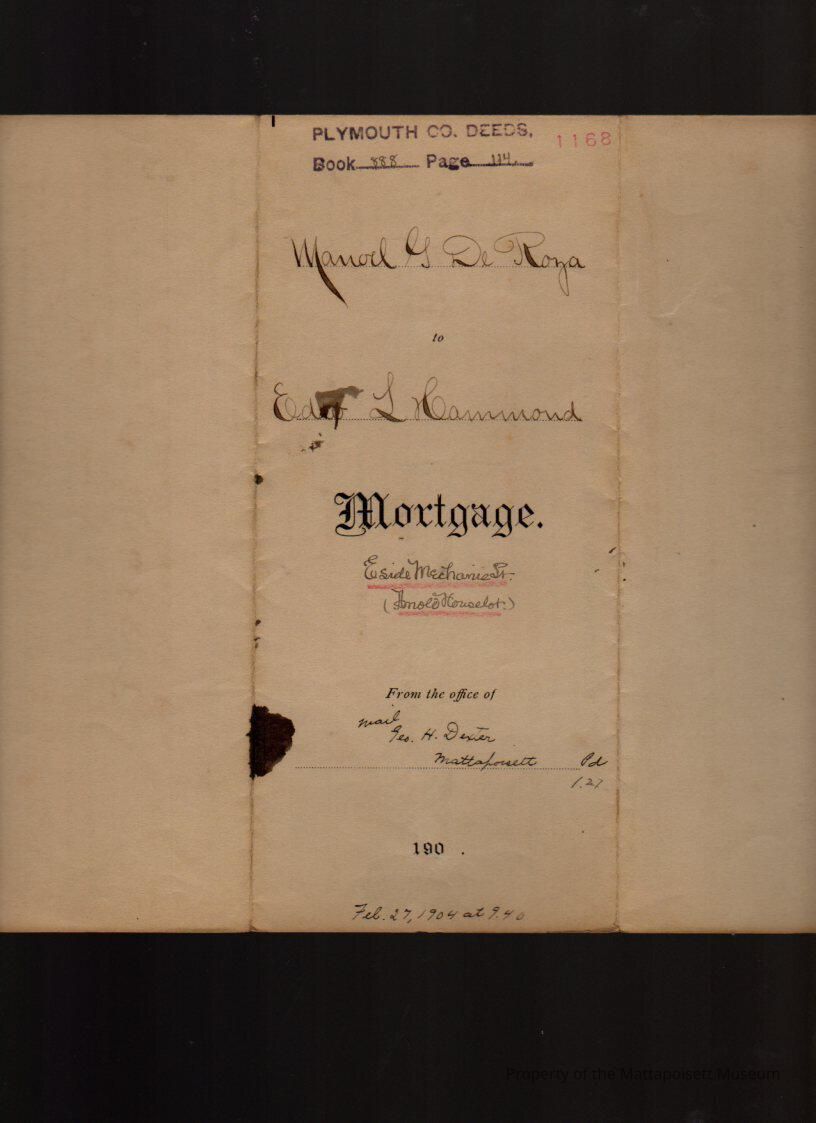 PLYMOUTH CO. DEEDS,
1168
Book 888 Page 114.
Manoel G De Roza
to
Edw L Hammond
Mortgage.
E side Mechanic St.
(Arnold Houselot.)
From the office of
mail
Geo. H. Dexter
Mattapoisett Pd
1.27
190 .
Feb. 27, 1904 at 9.40
Property of the Mattapoisett Museum